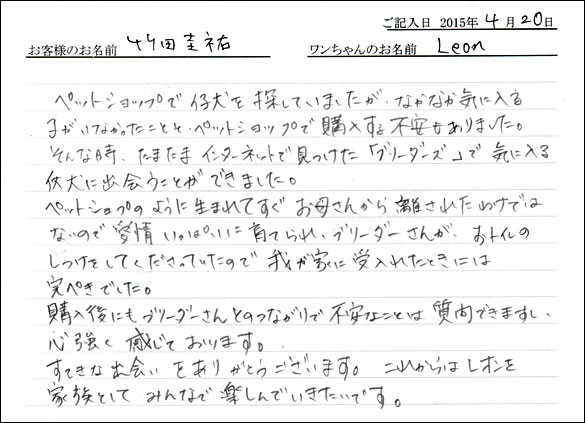 ご記入日 2015年4月20日
お客様のお名前 竹田圭祐 ワンちゃんのお名前 Leon
ペットショップで仔犬を探していましたが、なかなか気に入る
子がいなかったことと、ペットショップで購入する不安もありました。
そんな時、たまたまインターネットで見つけた「ブリーダーズ」で気に入る
仔犬に出会うことができました。
ペットショップのように生まれてすぐお母さんから離されたわけでは
ないので愛情いっぱいに育てられ、ブリーダーさんが、おトイレの
しつけをしてくださっていたので我が家に受入れたときには
完ぺきでした。
購入後にもブリーダーさんとのつながりで不安なことは質問できますし、
心強く感じております。
すてきな出会いをありがとうございます。これからはレオンを
家族としてみんなで楽しんでいきたいです。